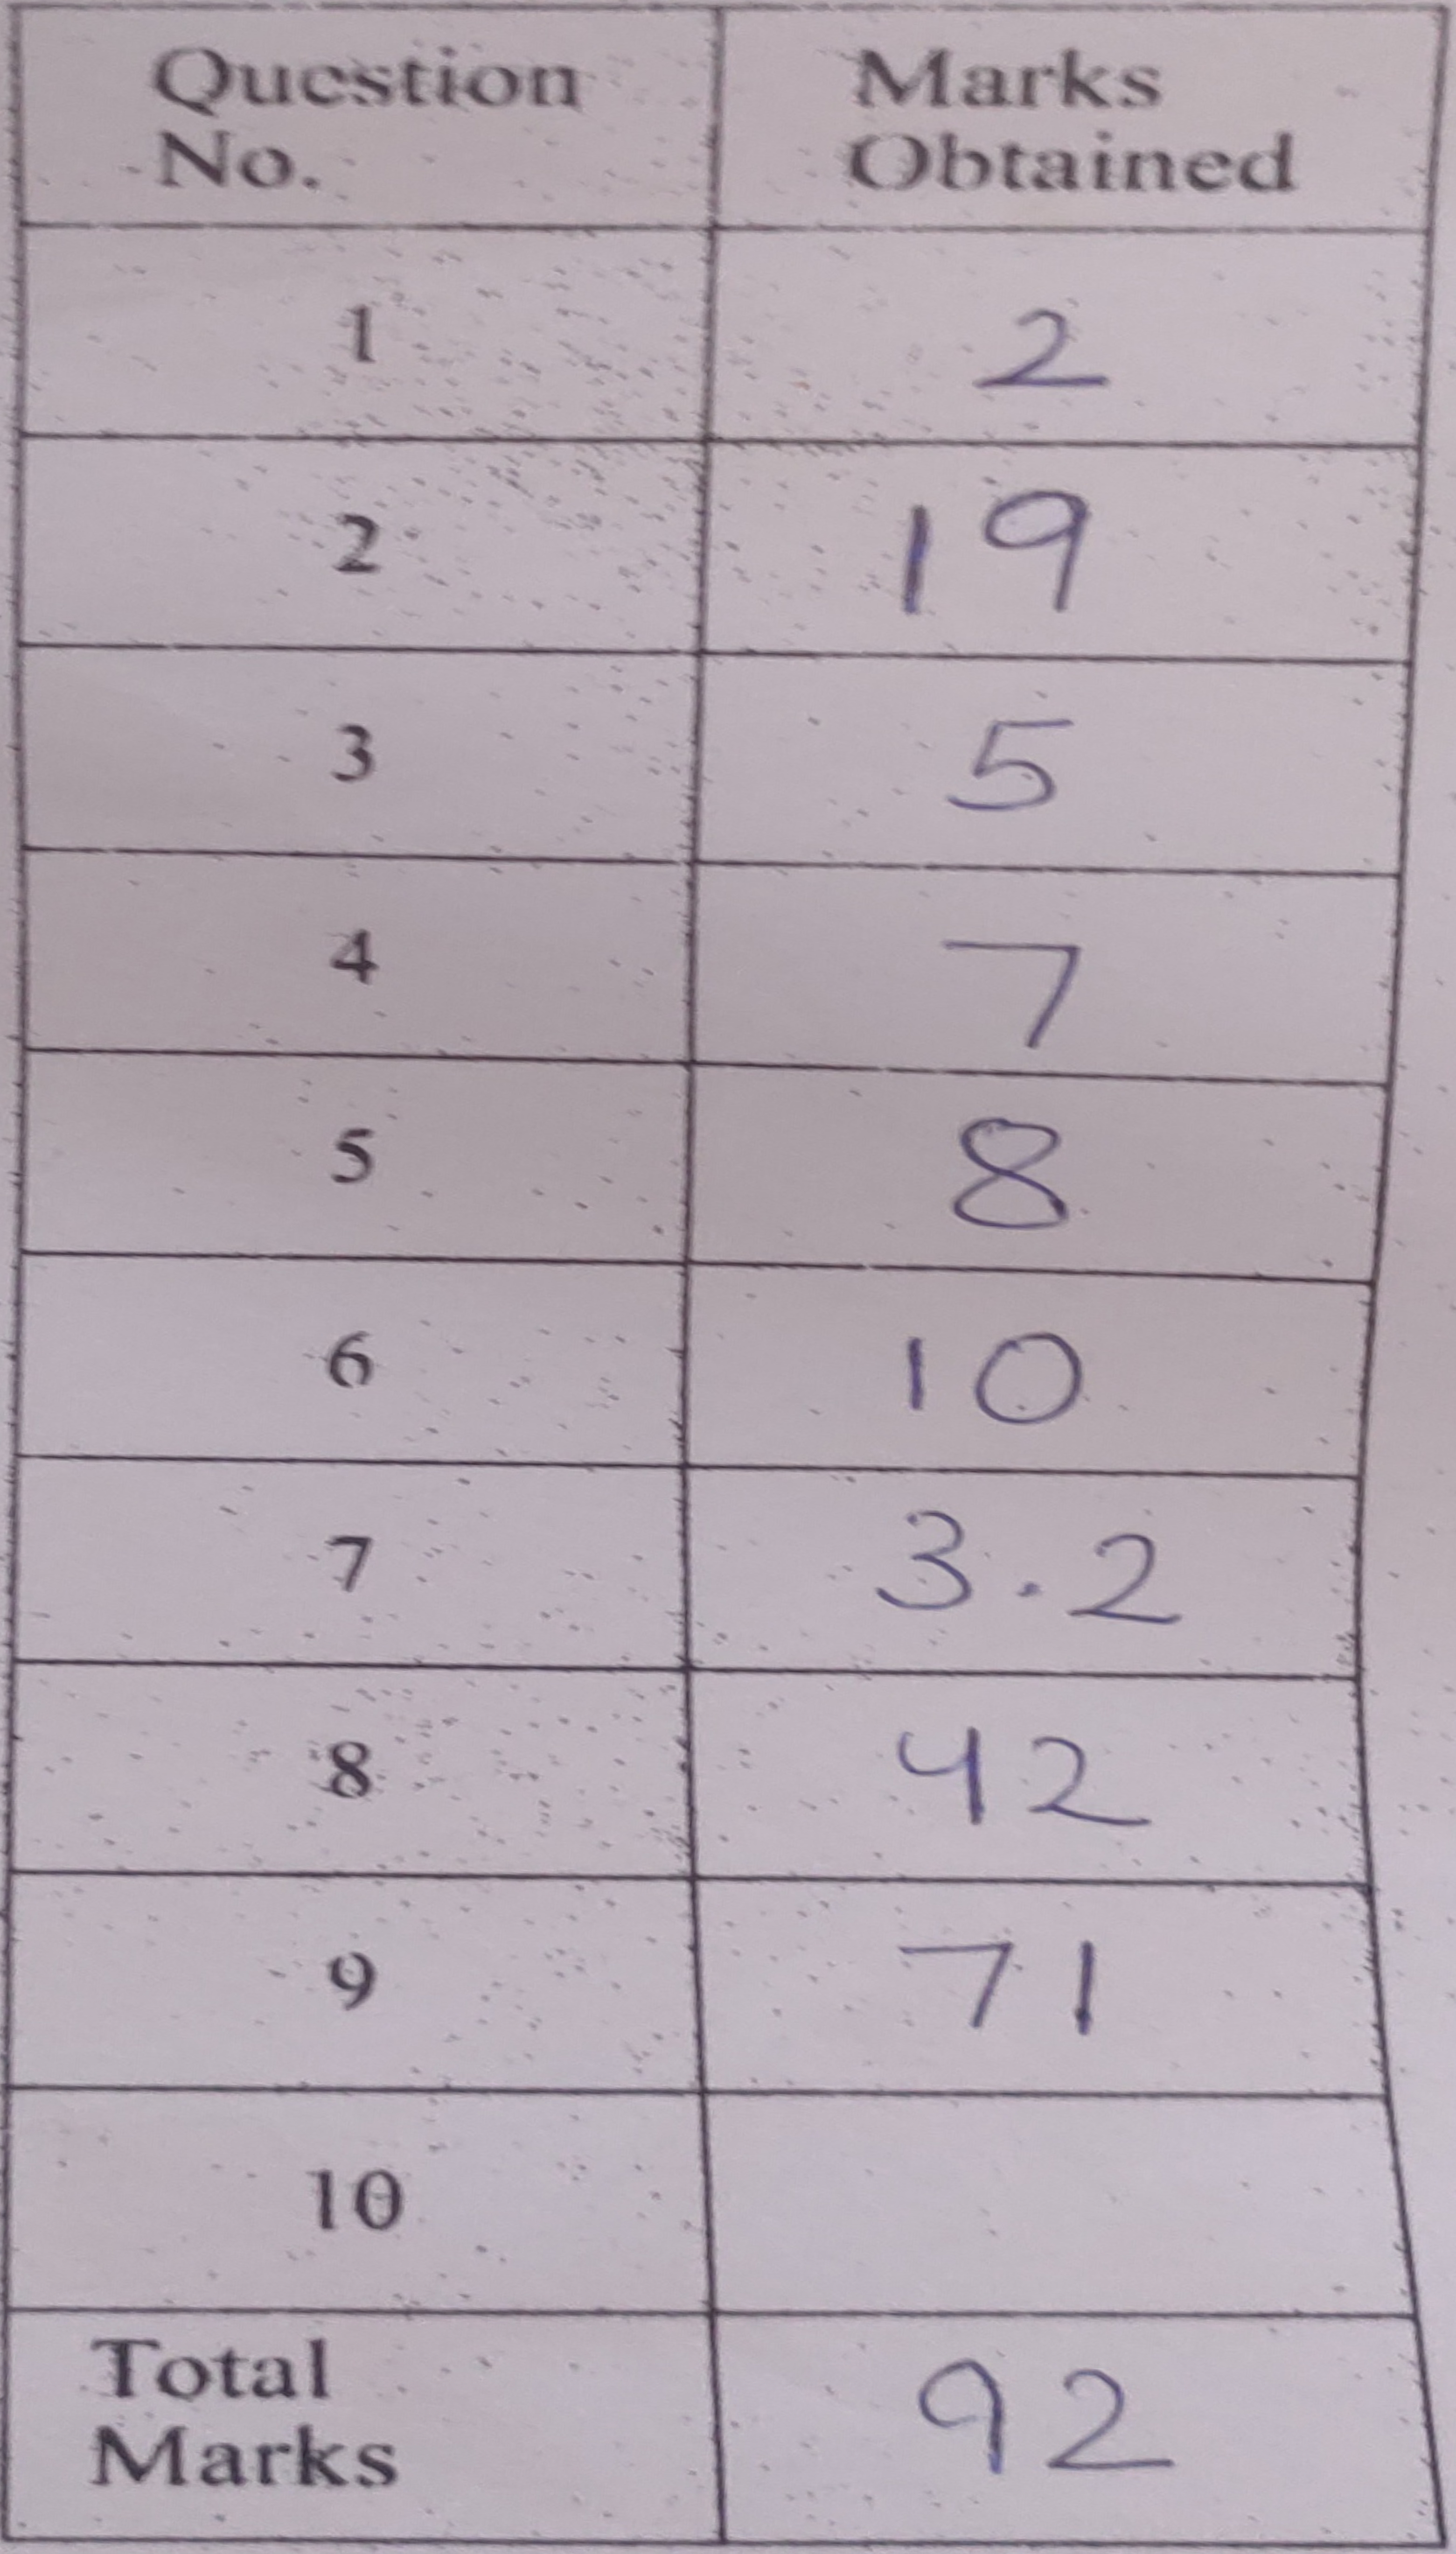 Question No. Marks Obtained
1 2
2 19
3 5
4 7
5 8
6 10
7 3.2
8 42
9 71
10
Total Marks 92